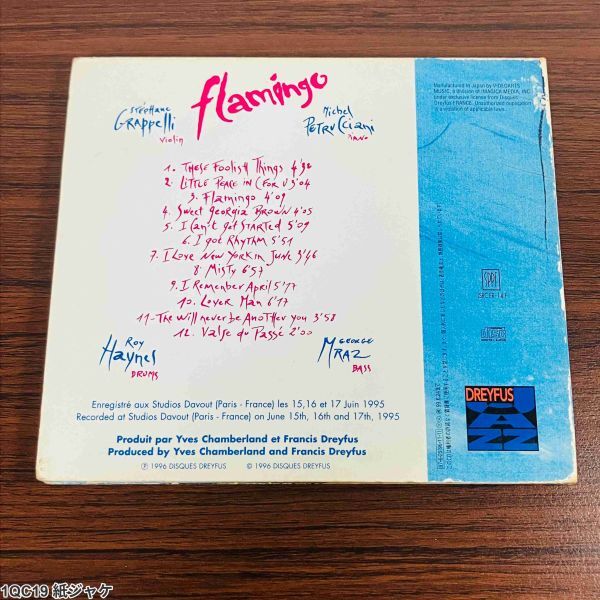 flamingo
Stéphane
Grappelli
Violin
Michel
Petrucciani
Piano
1. These Foolish Things 4'38
2. Little Peace in C for U 3'04
3. Flamingo 4'09
4. Sweet Georgia Brown 4'05
5. I Can't got Started 5'09
6. I got Rhythm 5'51
7. I Love New York in June 3'46
8. Misty 6'57
9. I Remember April 5'17
10. Lover Man 6'17
11-The Will never be Another you 3'58
12. Valse du Passé 2'00
Roy
Haynes
Drums
George
Mraz
Bass
Enregistré aux Studios Davout (Paris - France) les 15,16 et 17 Juin 1995
Recorded at Studios Davout (Paris - France) on June 15th, 16th and 17th, 1995
Produit par Yves Chamberland et Francis Dreyfus
Produced by Yves Chamberland and Francis Dreyfus
Ⓟ 1996 DISQUES DREYFUS © 1996 DISQUES DREYFUS
Manufactured in Japan by VIDEOARTS
MUSIC, a division of IMAGICA MEDIA, INC.
under exclusive license from Disques
Dreyfus FRANCE. Unauthorized duplication
is a violation of applicable laws.
DREYFUS
JAZZ
1QC19 紙ジャケ